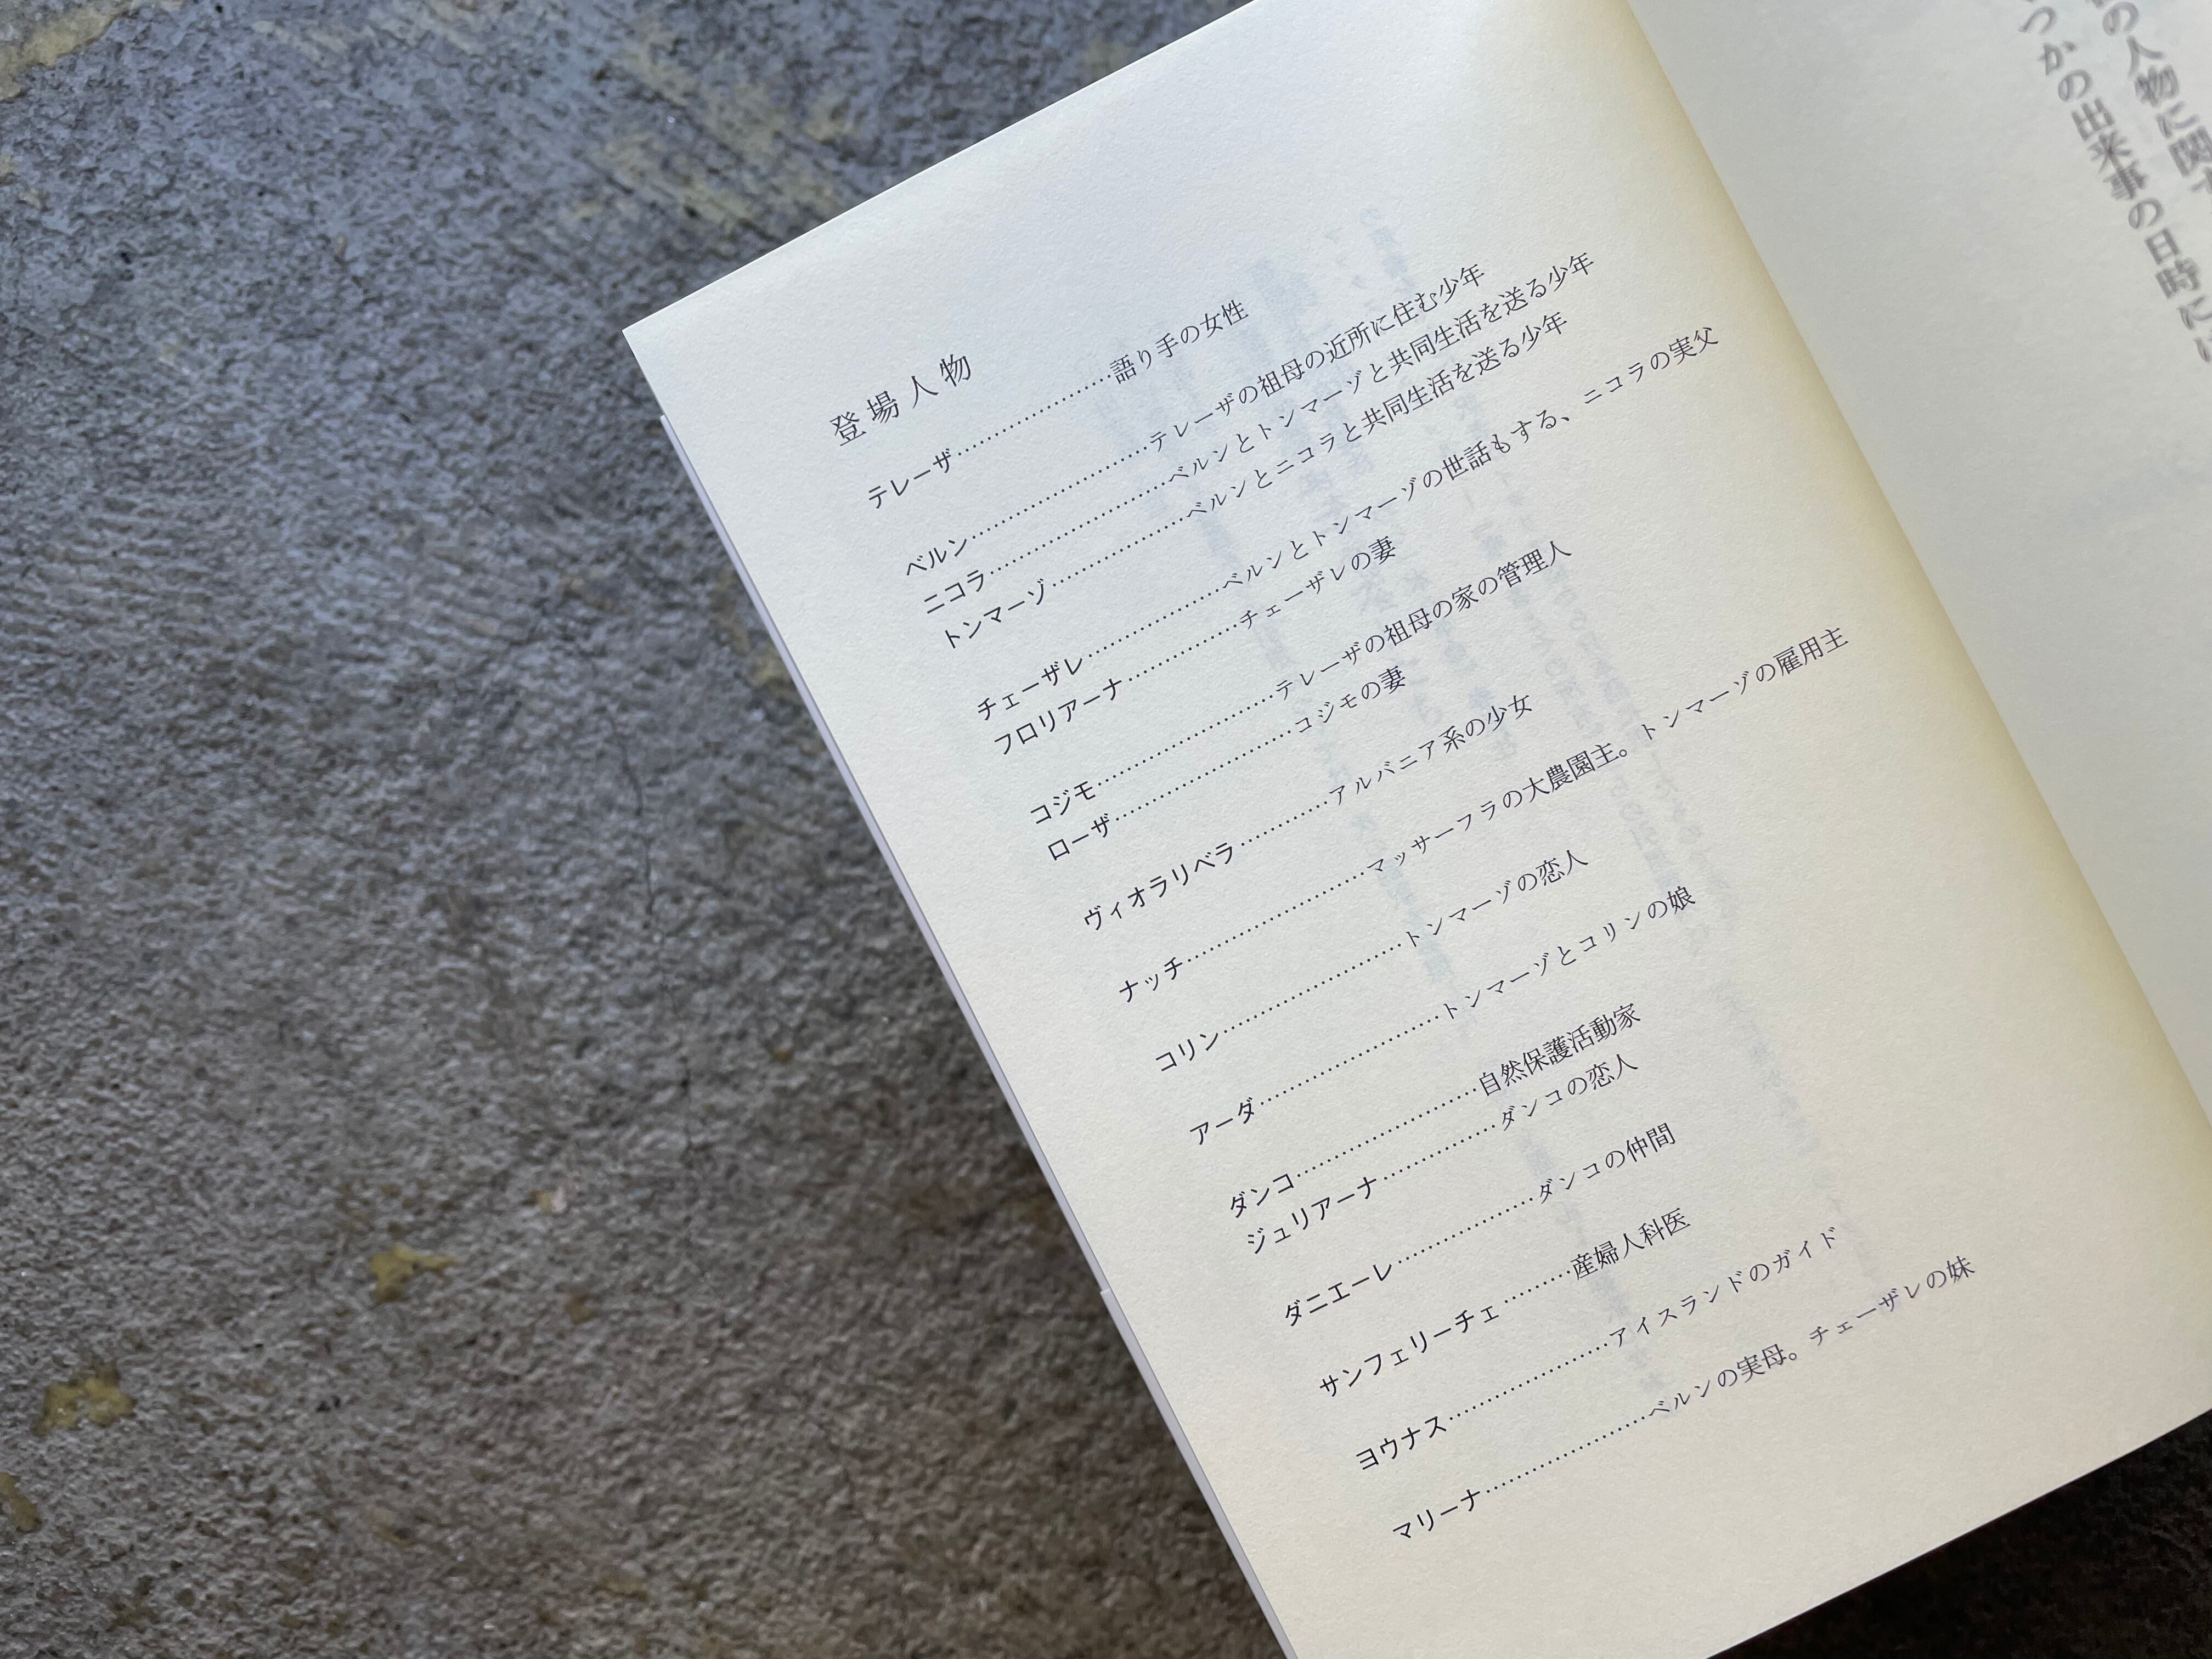 登場人物
テレーザ……………………語り手の女性
ベルン………………………テレーザの祖母の近所に住む少年
ニコラ………………………ベルンとトンマーゾと共同生活を送る少年
トンマーゾ…………………ベルンとニコラと共同生活を送る少年
チェーザレ…………………ベルンとトンマーゾの世話もする、ニコラの実父
フロリアーナ………………チェーザレの妻
コジモ………………………テレーザの祖母の家の管理人
ローザ………………………コジモの妻
ヴィオラリベラ……………アルバニア系の少女
ナッチ………………………マッサーフラの大農園主。トンマーゾの雇用主
コリン………………………トンマーゾの恋人
アーダ………………………トンマーゾとコリンの娘
ダンコ………………………自然保護活動家
ジュリアーナ………………ダンコの恋人
ダニエーレ…………………ダンコの仲間
サンフェリーチェ…………産婦人科医
ヨウナス……………………アイスランドのガイド
マリーナ……………………ベルンの実母。チェーザレの妹
の人物に関す
つかの出来事の日時に